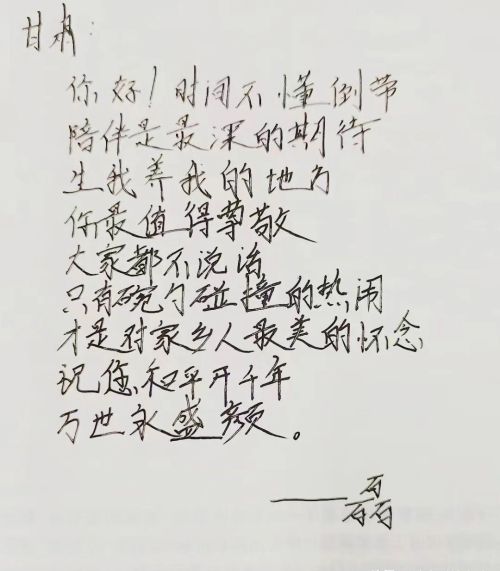 甘肃：
你好！时间不懂倒带
陪伴是最深的期待
生我养我的地方
你最值得尊敬
大家都不说话
只有碗勺碰撞的热闹
才是对家乡人最美的怀念
祝您和平开千年
万世永盛颜。
——磊